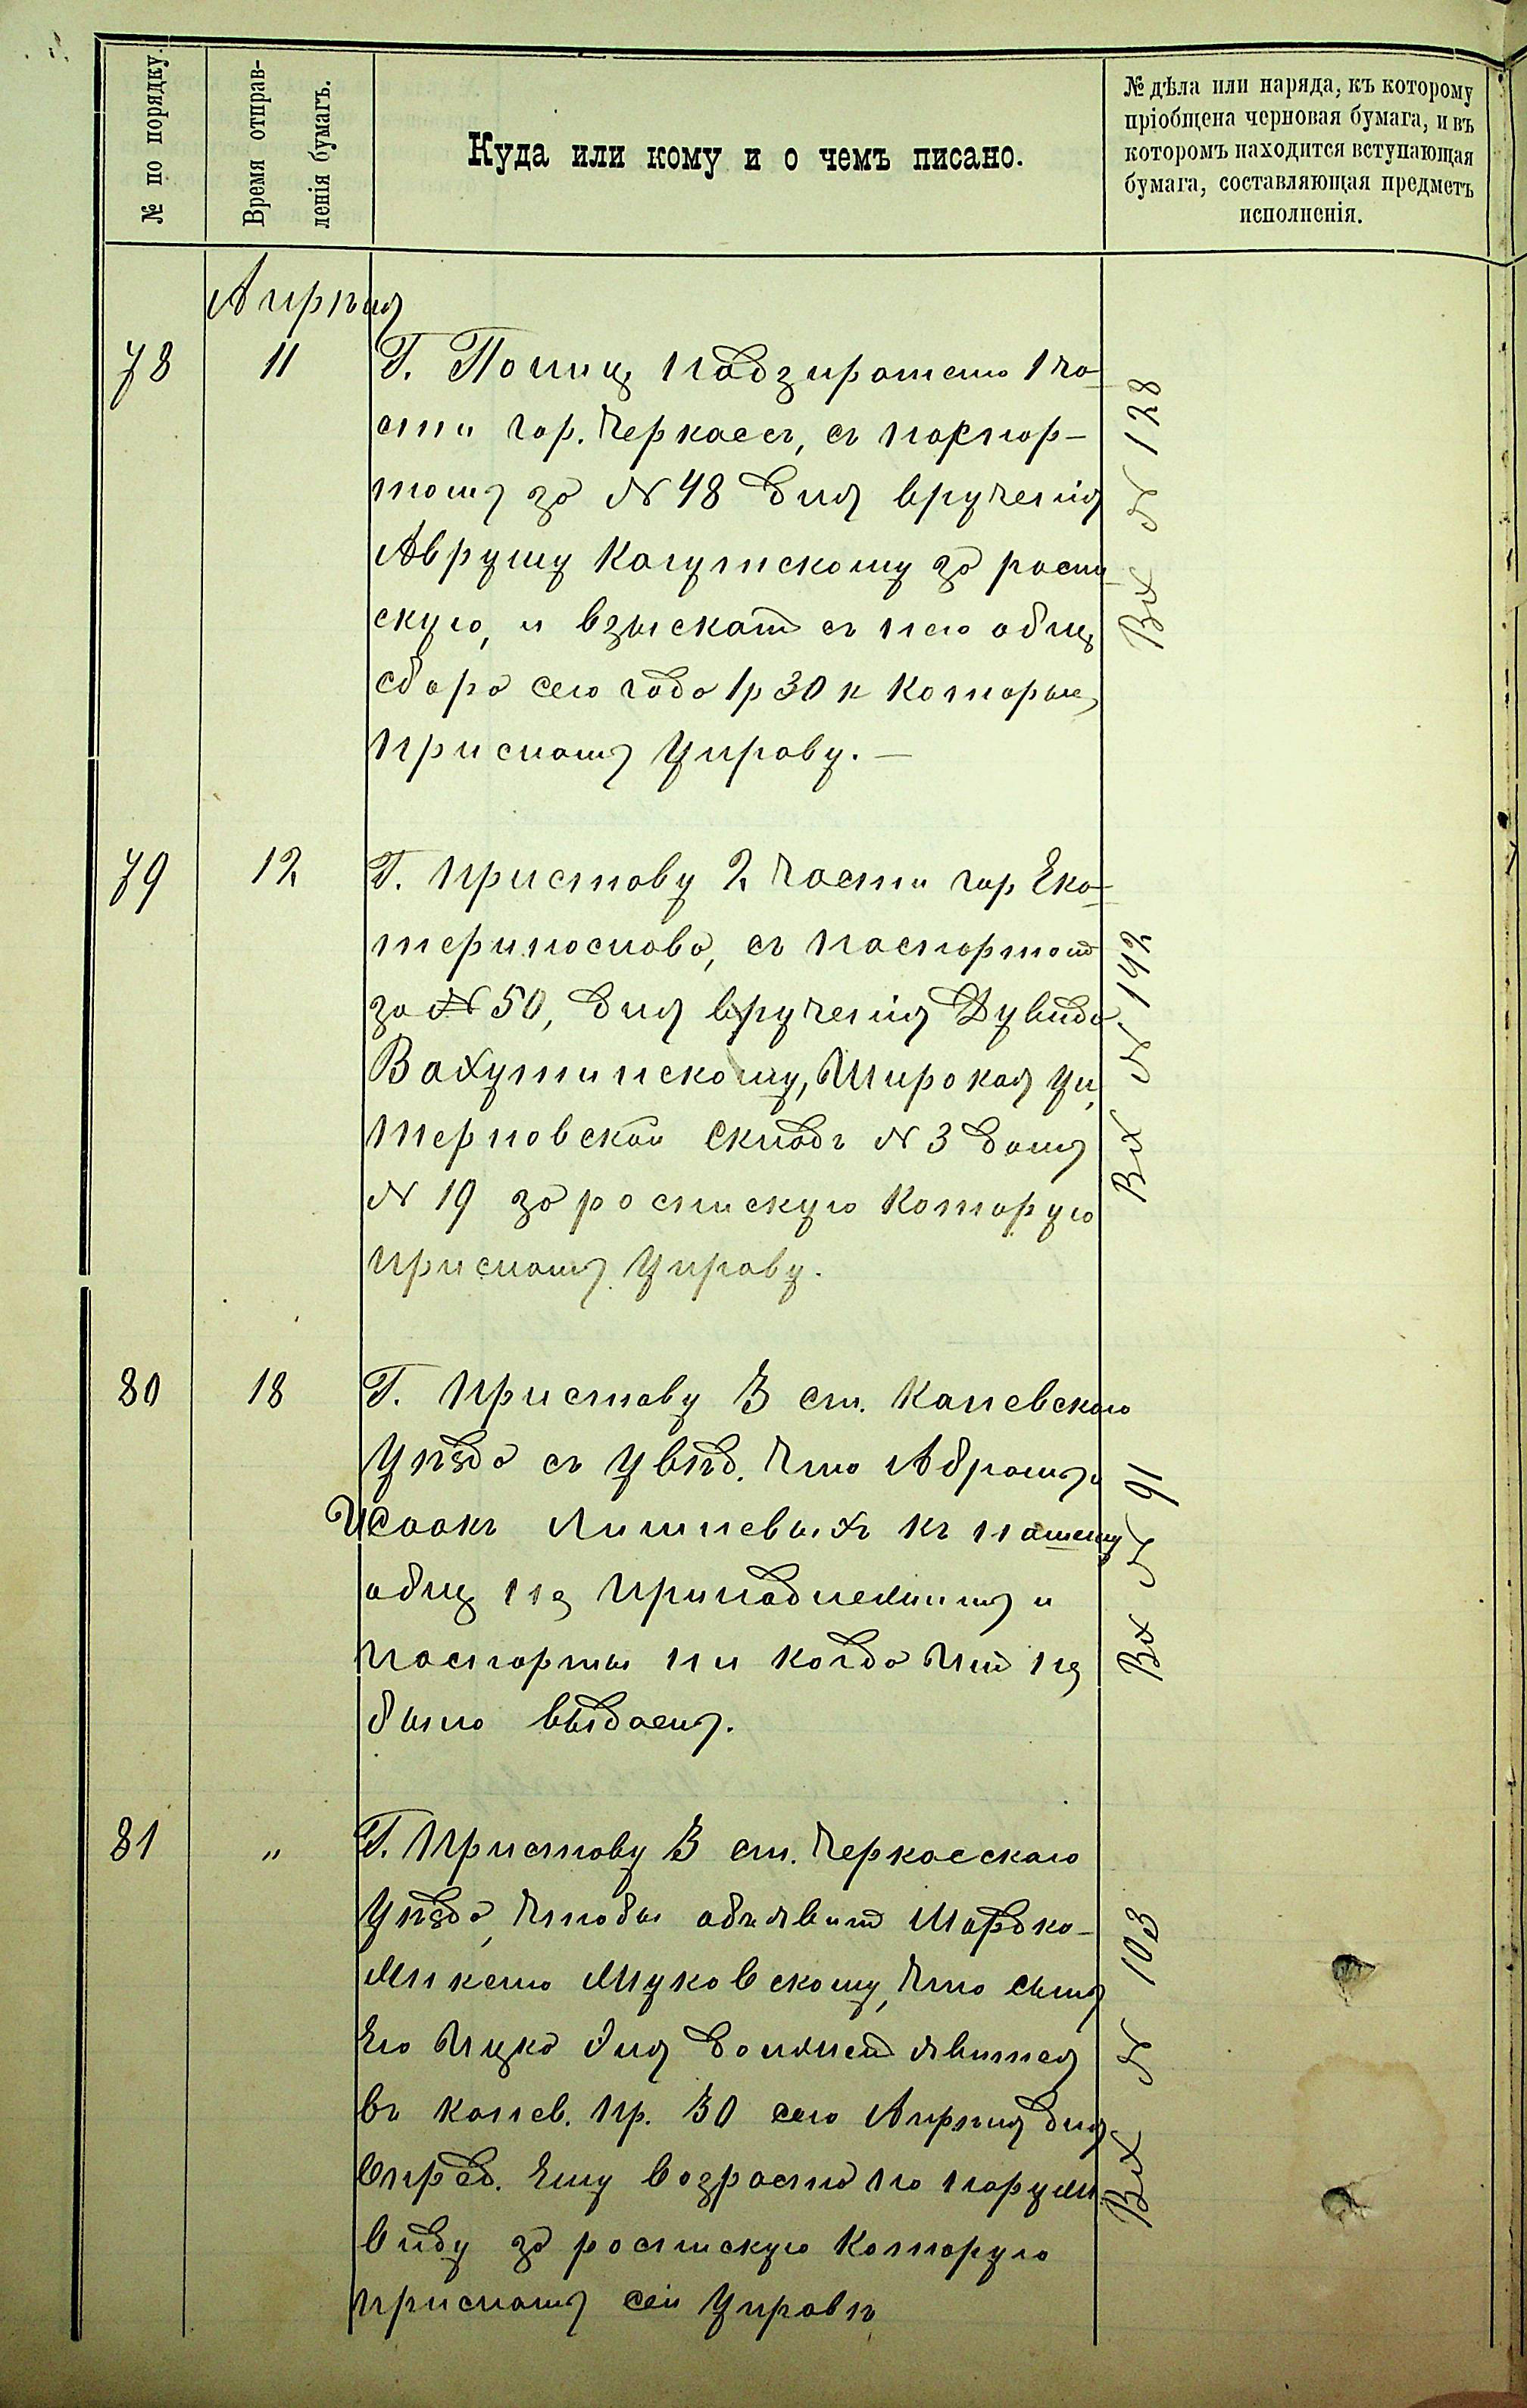 № по порядку.
Время отправ-
ленія бумагъ.
Куда или кому и о чемъ писано.
№ дѣла или наряда, къ которому
пріобщена черновая бумага, и въ
которомъ находится вступающая
бумага, составляющая предметъ
исполненія.
Апрѣля
78 11 Г. Полиц. Надзирателю 1 ча-
сти гор. Черкассъ, съ паспор-
томъ за № 48 для врученія
Аврумy Кагутскому за роспи
скую, и взыскать съ него общ.
сбора сего года 1 р 30 к которые
прислать Управу. —
Вх № 128
79 12 Г. Приставу 2 части гор Ека-
теринослава, съ паспортомъ
за № 50, для врученія Дувиду
Вахутинскому, Широкая ул,
Терновской Складъ № 3 домъ
№ 19 за росписскую которую
прислать Управу.
Вх № 142
80 18 Г. Приставу 3 ст. Каневского
Уѣзда съ увѣд. что Абрамъ и
Исаакъ Лишневыхъ къ нашему
общ не принадлежитъ и
паспорты ни когда имъ не
было выдаемъ.
Вх № 91
81 „ Г. Приставу 3 ст. Черкасскаго
Уѣзда, чтобы объявить Мордко-
Микелю Жуковскому, что сынъ
Его Ицко для долженъ явится
въ канев. пр. 30 сего Апрѣля для
опред. Ему возраста по наружн
виду за росписскую которую
прислать сей Управѣ
Вх № 103